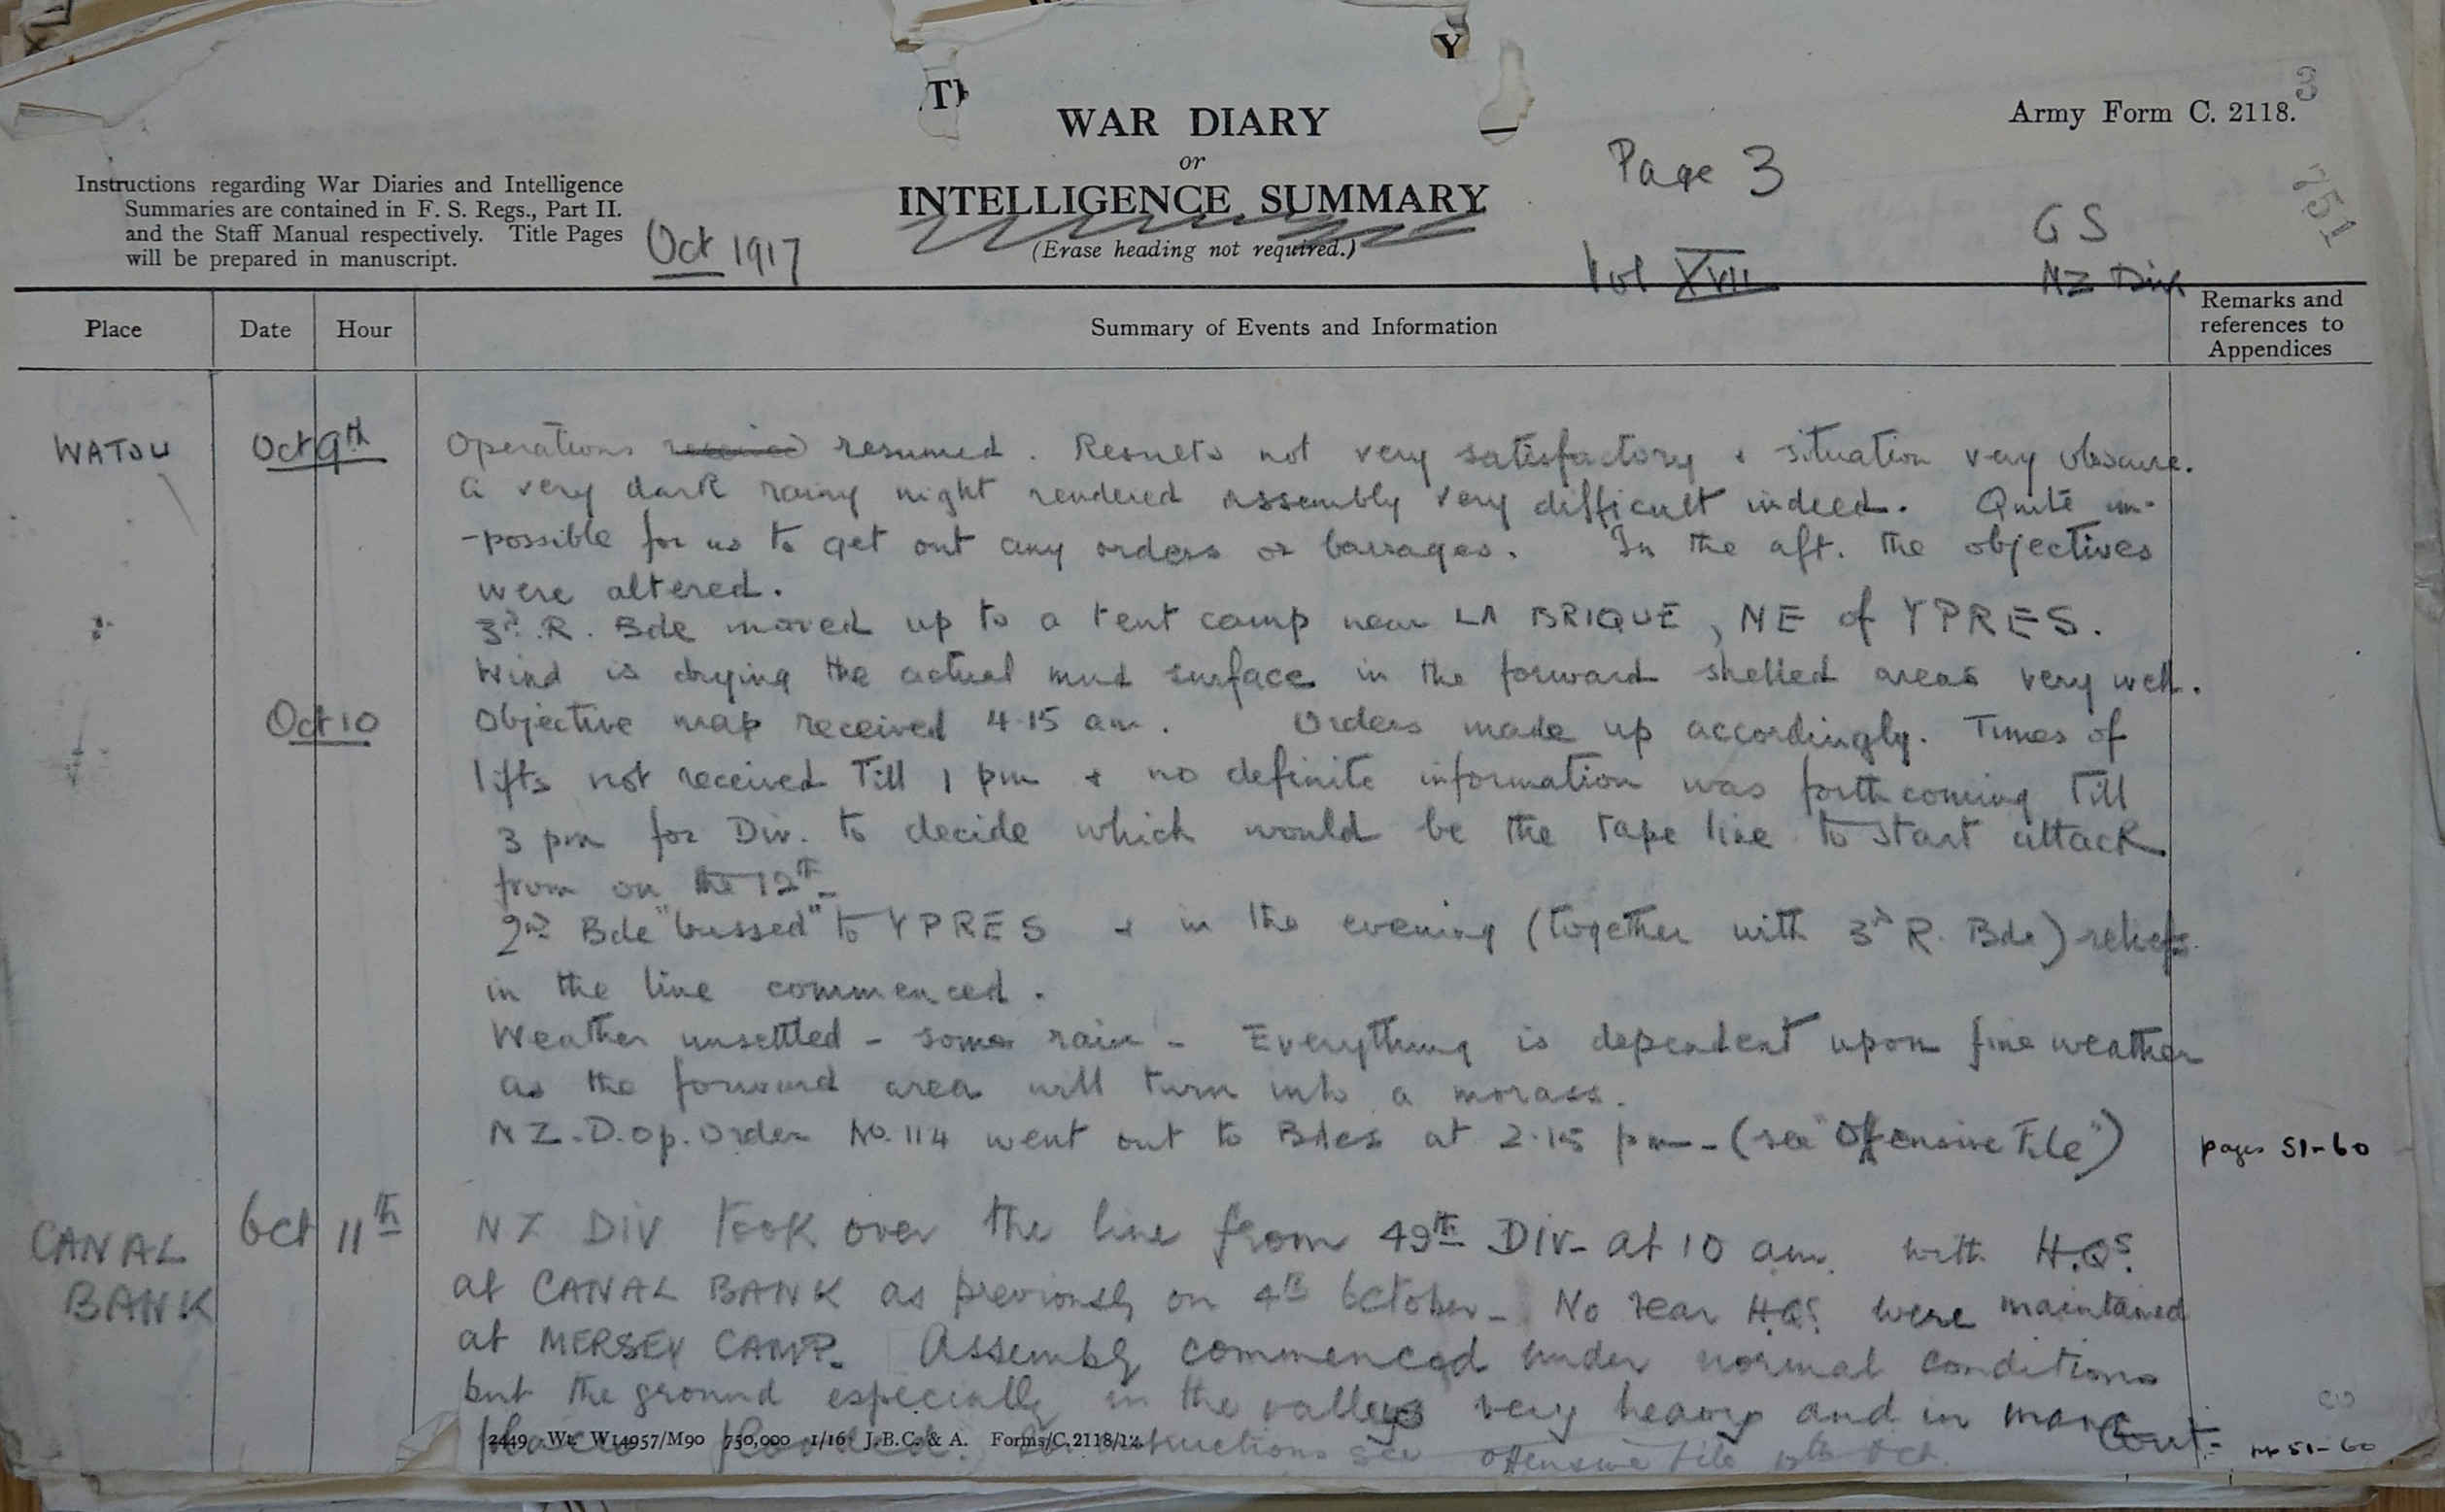 Y
TH
WAR DIARY
or
INTELLIGENCE SUMMARY
(Erase heading not required.)
Army Form C. 2118.
3
751
Instructions regarding War Diaries and Intelligence
Summaries are contained in F. S. Regs., Part II.
and the Staff Manual respectively. Title Pages
will be prepared in manuscript.
Oct 1917
Page 3
Vol XVII
GS
NZ Div
Place Date Hour Summary of Events and Information Remarks and
references to
Appendices
WATOU Oct 9th Operations resumed. Results not very satisfactory & situation very obscure.
A very dark rainy night rendered assembly very difficult indeed. Quite im-
-possible for us to get out any orders or barrages. In the aft. the objectives
were altered.
3rd R. Bde moved up to a tent camp near LA BRIQUE, NE of YPRES.
Wind is drying the actual mud surface in the forward shelled areas very well.
Oct 10 Objective map received 4.15 am. Orders made up accordingly. Times of
lifts not received till 1 pm & no definite information was forthcoming till
3 pm for Div. to decide which would be the tape line to start attack
from on the 12th.
2nd Bde "bussed" to YPRES & in the evening (together with 3rd R. Bde) reliefs
in the line commenced.
Weather unsettled - some rain - Everything is dependent upon fine weather
as the forward area will turn into a morass.
N.Z.D. Op. Order No. 114 went out to Bdes at 2.15 pm - (see "Offensive File") pages 51-60
CANAL
BANK Oct 11th NZ DIV took over the line from 49th DIV- at 10 am. with H.Qs.
at CANAL BANK as previously on 4th October- No rear H.Qs. were maintained
at MERSEY CAMP. Assembly commenced under normal conditions
but the ground especially in the valleys very heavy and in many
places flooded. instructions see offensive file Oct. Cont- pp 51-60
2449 Wt. W14957/M90 750,000 1/16 J.B.C. & A. Forms/C.2118/12.